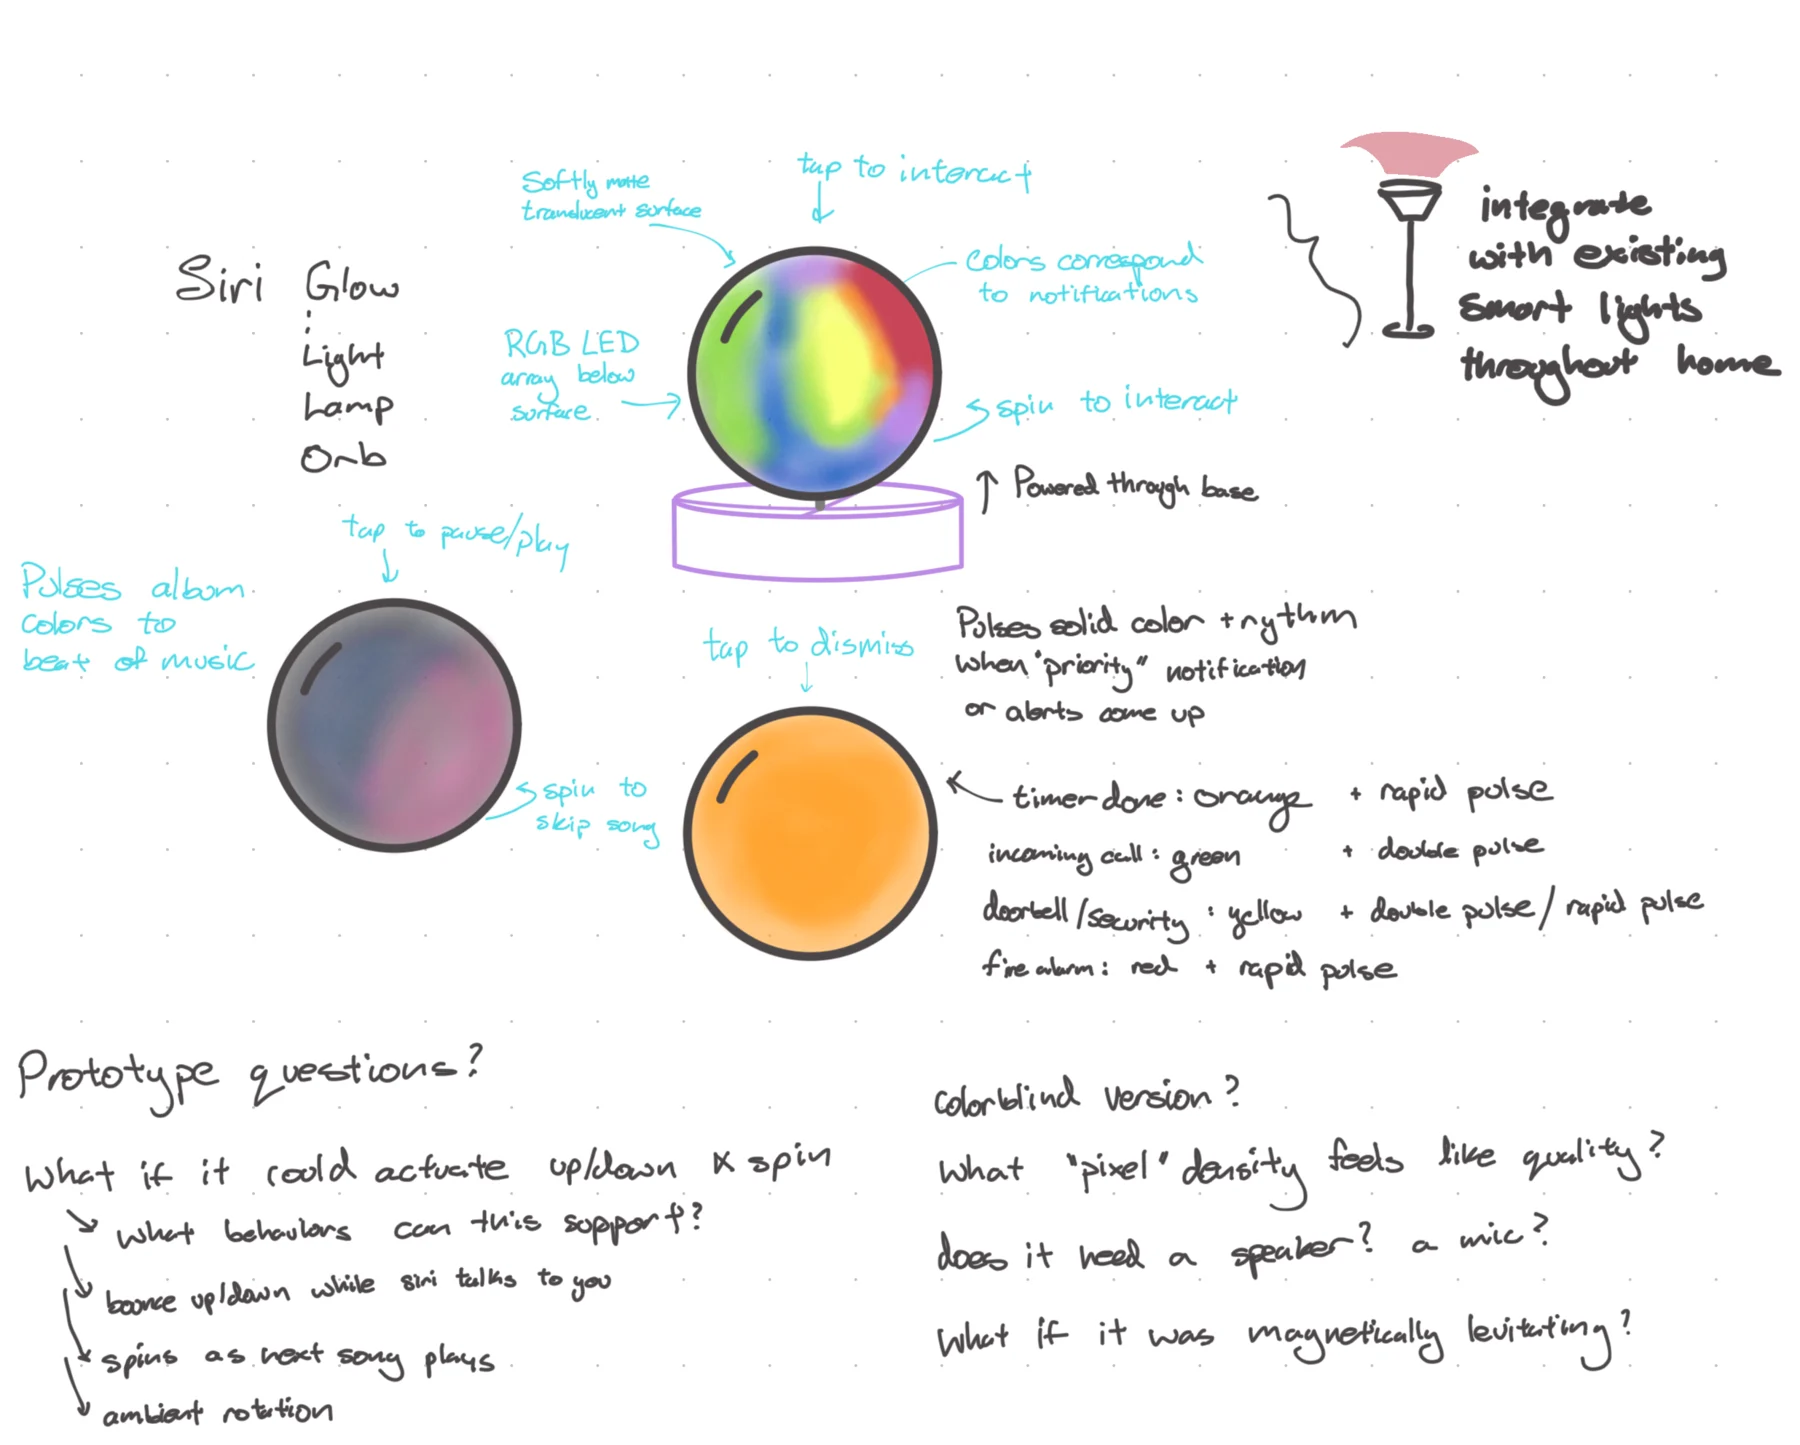 Siri Glow
Light
Lamp
Orb
Softly matte
translucent surface
tap to interact
Colors correspond
to notifications
RGB LED
array below
surface
spin to interact
Powered through base
integrate
with existing
smart lights
throughout home
tap to pause/play
Pulses album
colors to
beat of music
spin to
skip song
tap to dismiss
Pulses solid color + rythm
when "priority" notification
or alerts come up
timer done: orange + rapid pulse
incoming call: green + double pulse
doorbell/security: yellow + double pulse/rapid pulse
fire alarm: red + rapid pulse
Prototype questions?
What if it could actuate up/down & spin
What behaviors can this support?
bounce up/down while siri talks to you
spins as next song plays
ambient rotation
colorblind version?
What "pixel" density feels like quality?
does it need a speaker? a mic?
What if it was magnetically levitating?